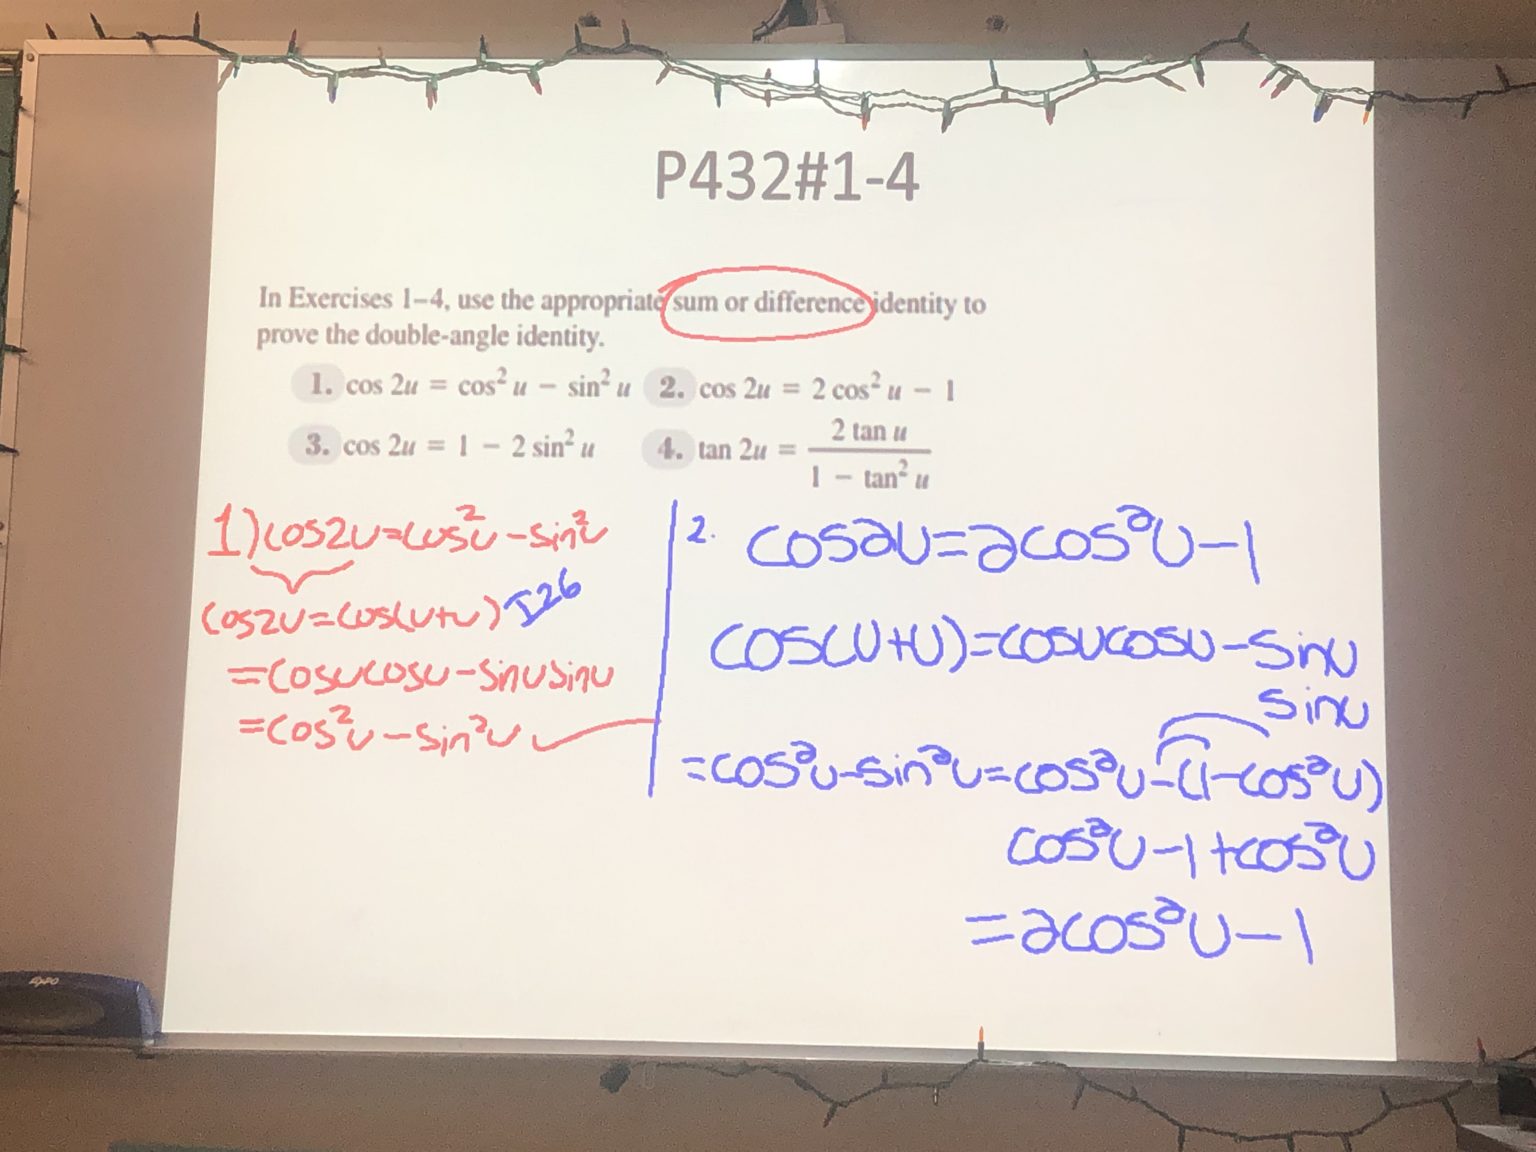 P432#1-4
In Exercises 1–4, use the appropriate sum or difference identity to
prove the double-angle identity.
1. cos 2u = cos² u − sin² u 2. cos 2u = 2 cos² u − 1
3. cos 2u = 1 − 2 sin² u 4. tan 2u = 2 tan u / 1 − tan² u
1) cos2u=cos²u-sin²u
cos2u=cos(u+u) I26
=cosucosu-sinusinu
=cos²u-sin²u ✓
2. cos2u=2cos²u-1
cos(u+u)=cosucosu-sinu
sinu
=cos²u-sin²u=cos²u-(1-cos²u)
cos²u-1+cos²u
=2cos²u-1
EXPO